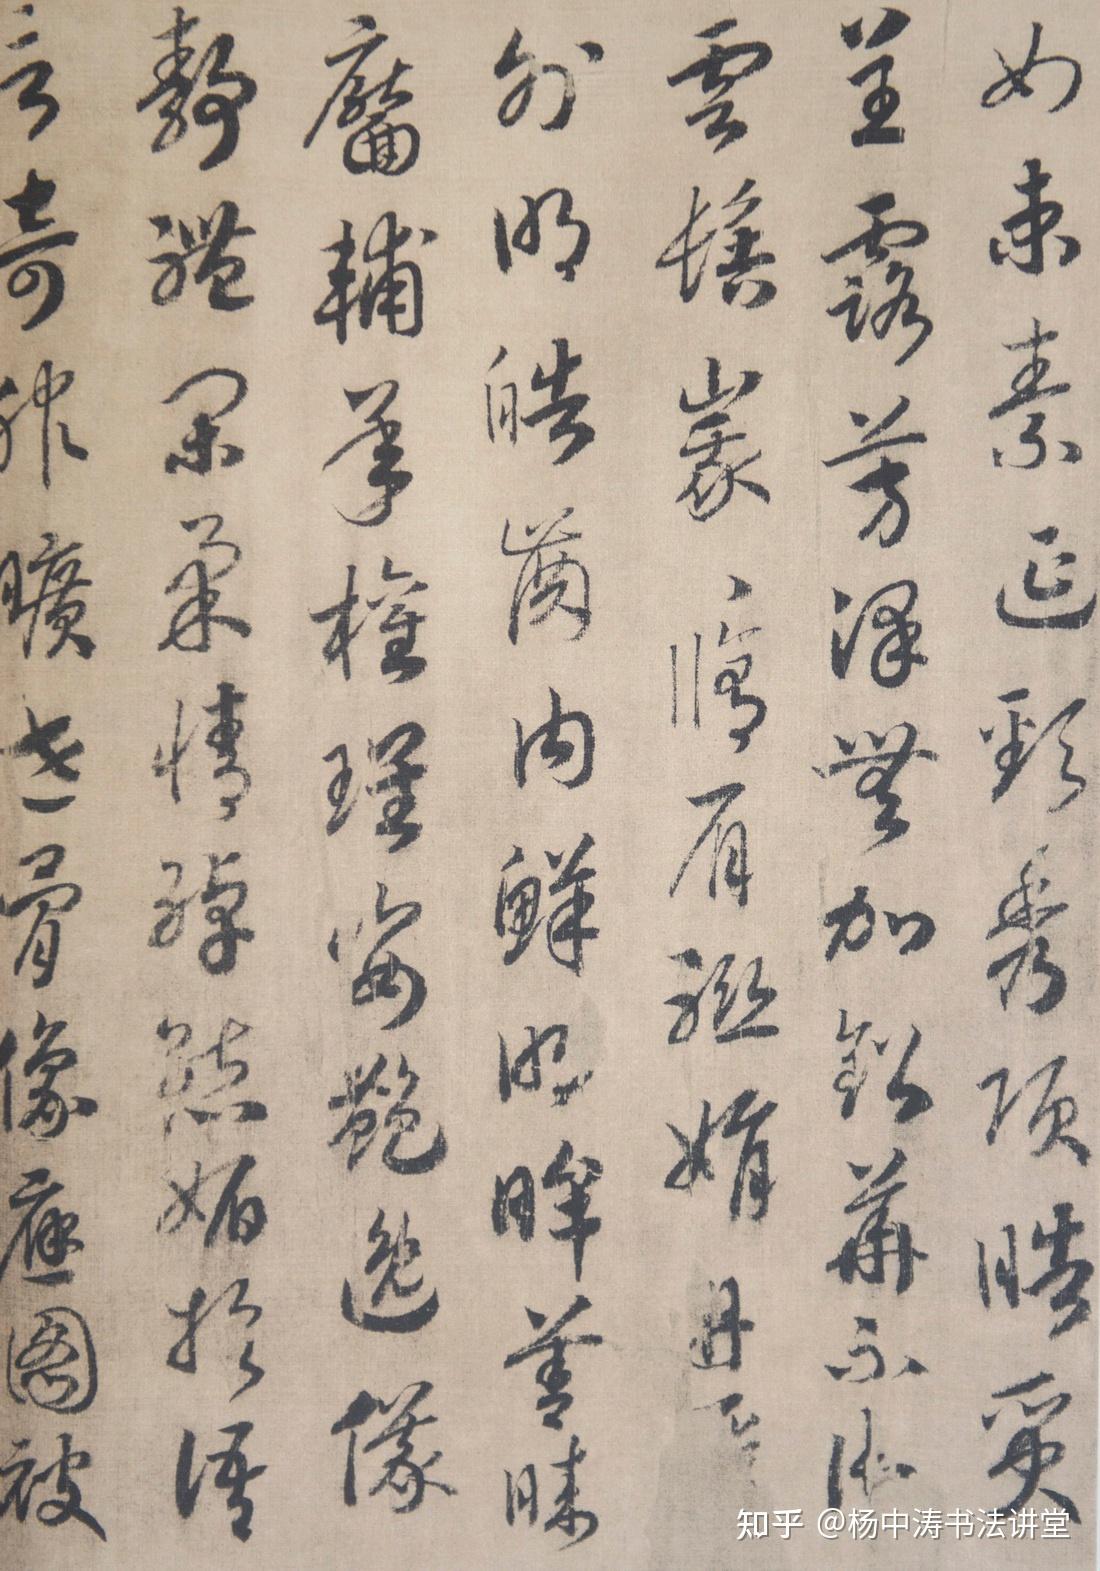 如束素延頸秀項皓質
呈露芳澤無加鉛華不御
雲髻峩〻脩眉聯娟丹脣
外朗皓齒内鮮明眸善睞
靨輔承權瓌姿豔逸儀
靜體閑柔情綽態媚於語
言奇服曠世骨像應圖被
知乎 @杨中涛书法讲堂